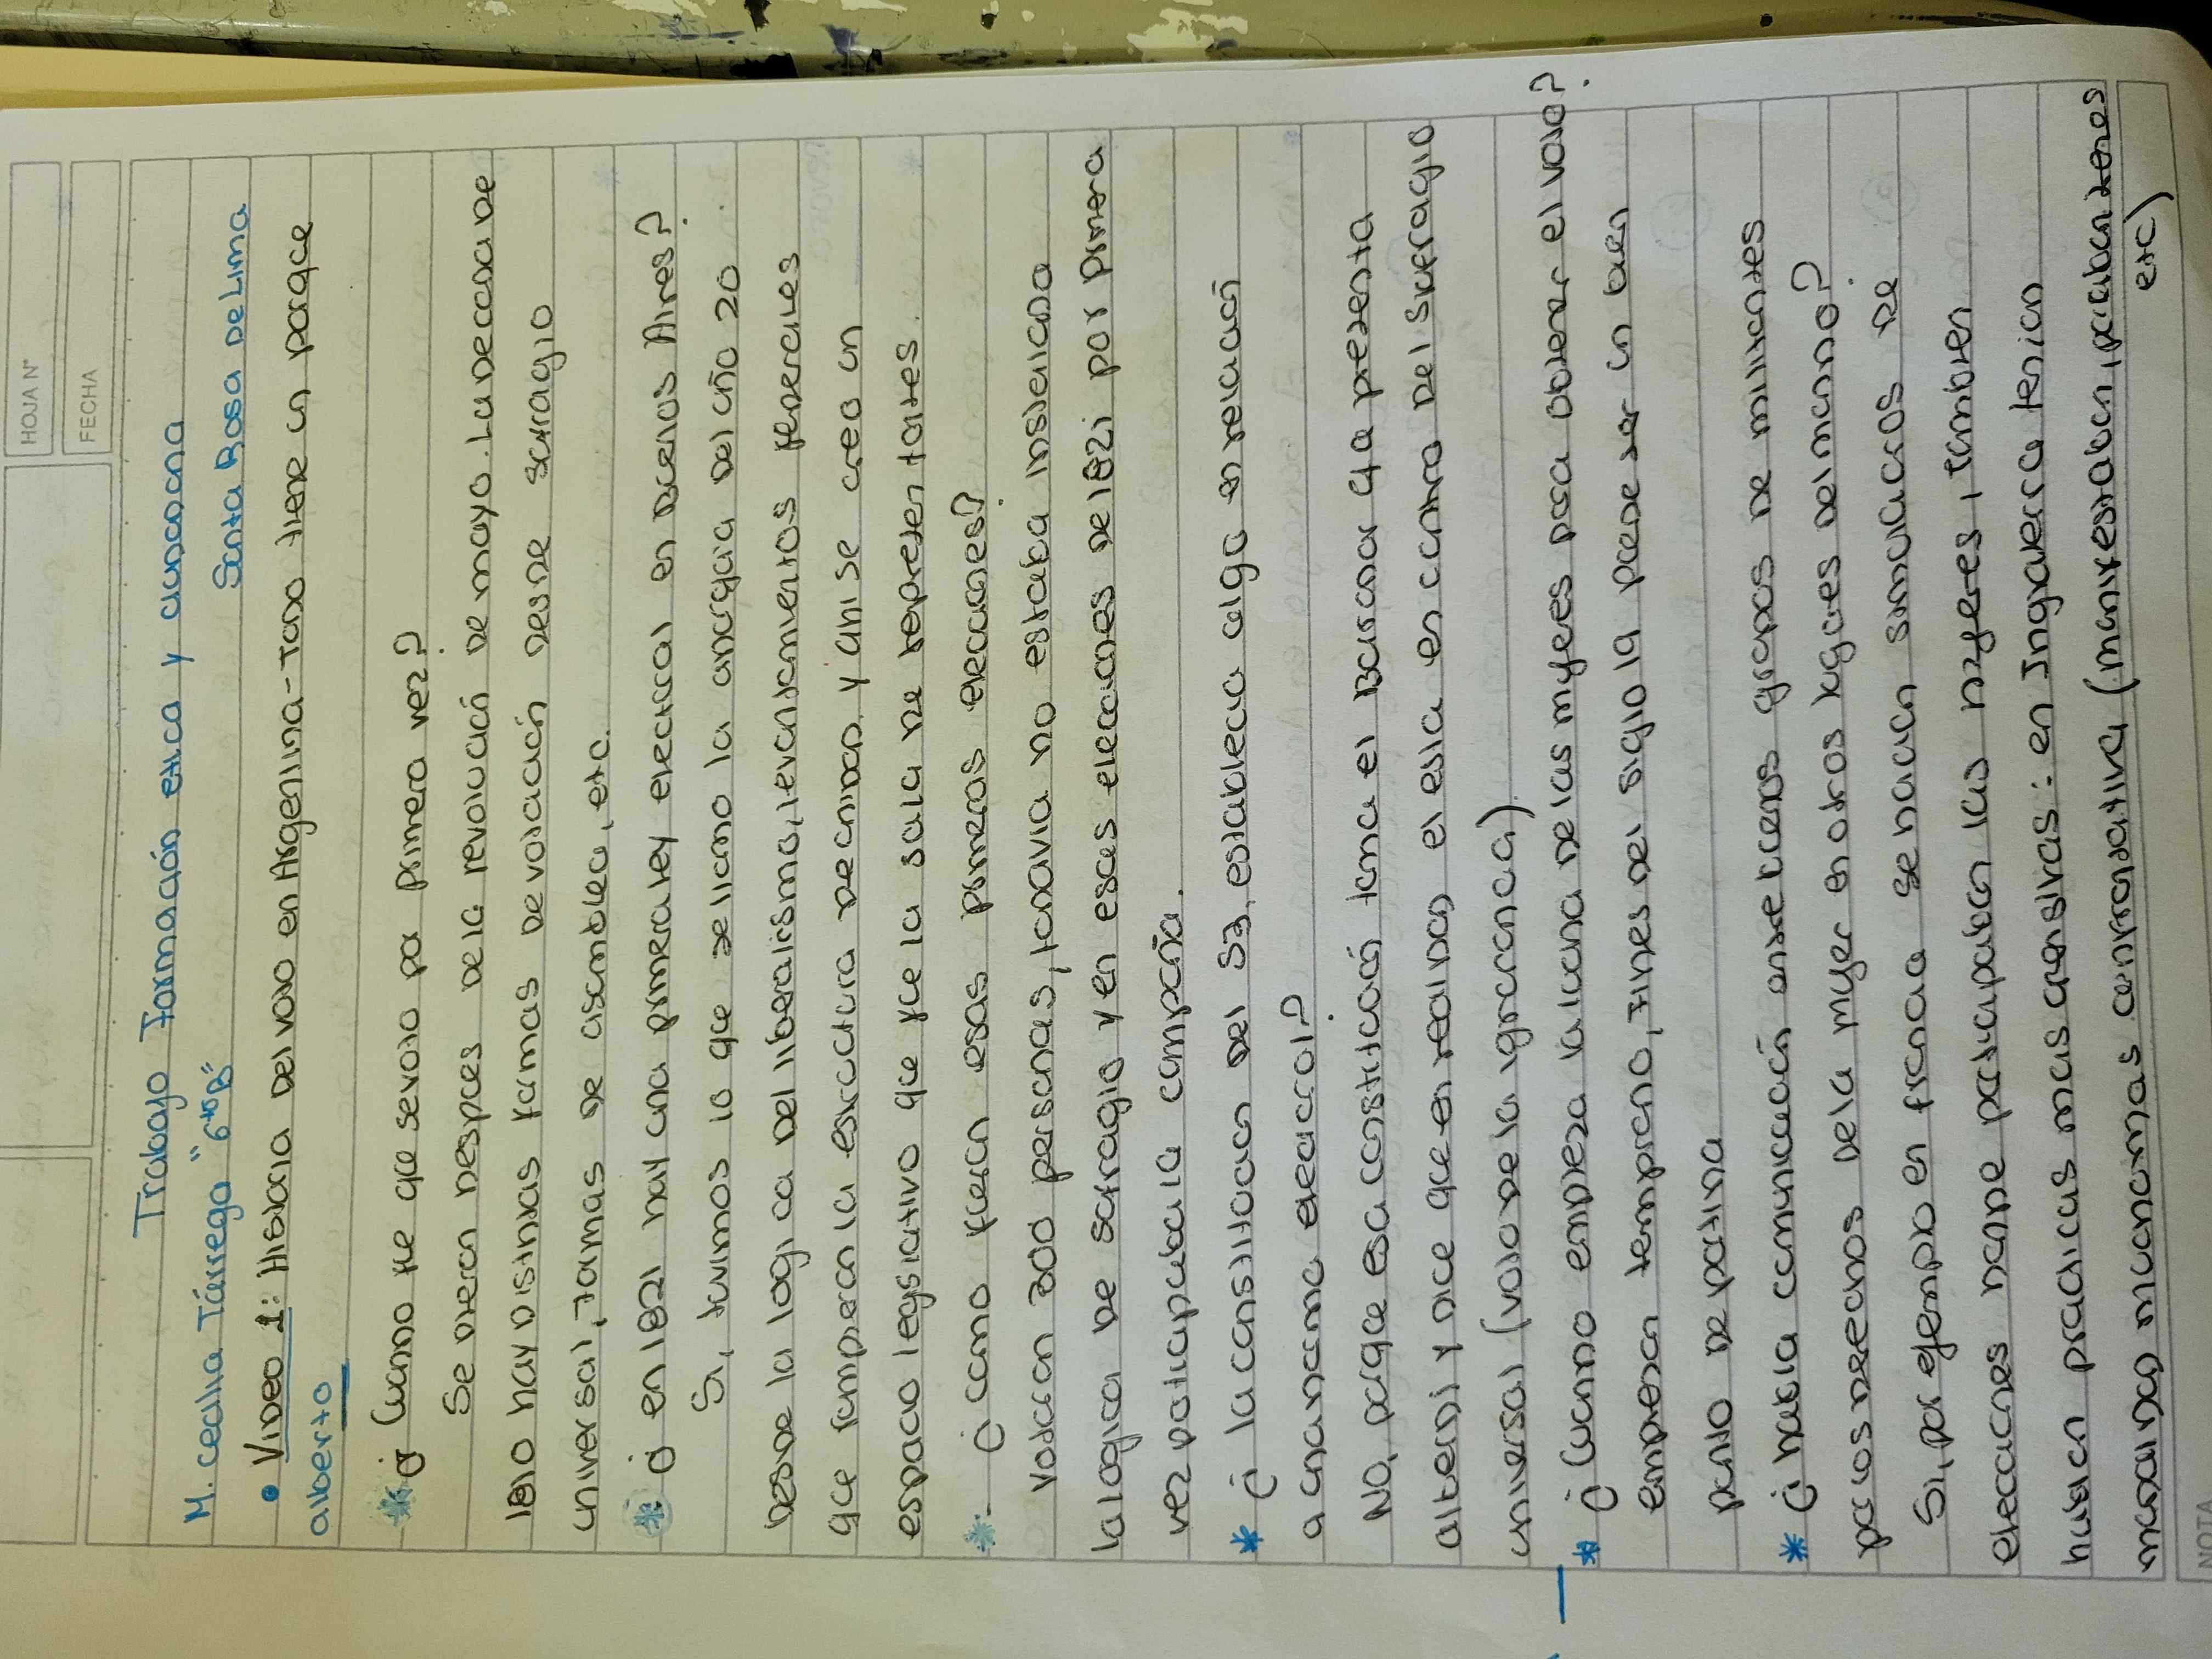 HOJA N°
FECHA
Trabajo Formación etica y ciudadana
M. Cecilia Tárrega "6to B" Santa Rosa De Lima
• Video 1: Historia Del voto en Argentina - Todo tiene un porque
alberto
* ¿Cuando fue que se voto por primera vez?
Se dieron despues de la revolución de mayo. La decada de
1810 hay distintas formas de votación desde sufragio
universal, formas de asamblea, etc.
* ¿en 1821 hay una primera ley electoral en Buenos Aires?
Si, tuvimos lo que se llamo la anarquia del año 20
Desde la logica del liberalismo, levantamientos federales
que rompieron la estructura de cnidad, y ahi se creo un
espacio legislativo que fue la sala de representates
* ¿como fueron esas primeras elecciones?
Votaron 300 personas, todavia no estaba instalado
la logica de sufragio y en esas elecciones de 1821 por primera
vez participaba la campaña.
* ¿la constitucion del 53, establecia algo en relación
a un anrama electoral?
No, porque esa constitución toma el que presenta
alberdi y dice que en realidad el esta en contra del sufragio
universal (voto de la ignorancia)
* ¿Cuando empieza la lucha de las mujeres para obtener el voto?
Empiezan temprano, fines del siglo 19 puede ser un buen
punto de partida
* ¿habia comunicación entre buenos grupos de militantes
por los derechos de la mujer en otros lugares del mundo?
Si, por ejemplo en francia se hacian simulacros de
elecciones donde participaban las mujeres, tambien
hubieron practicas mas agresivas: en Inglaterra tenian
modalidad mucho mas confrontativa (manifestaban, paraban trenes
etc)
NOTA